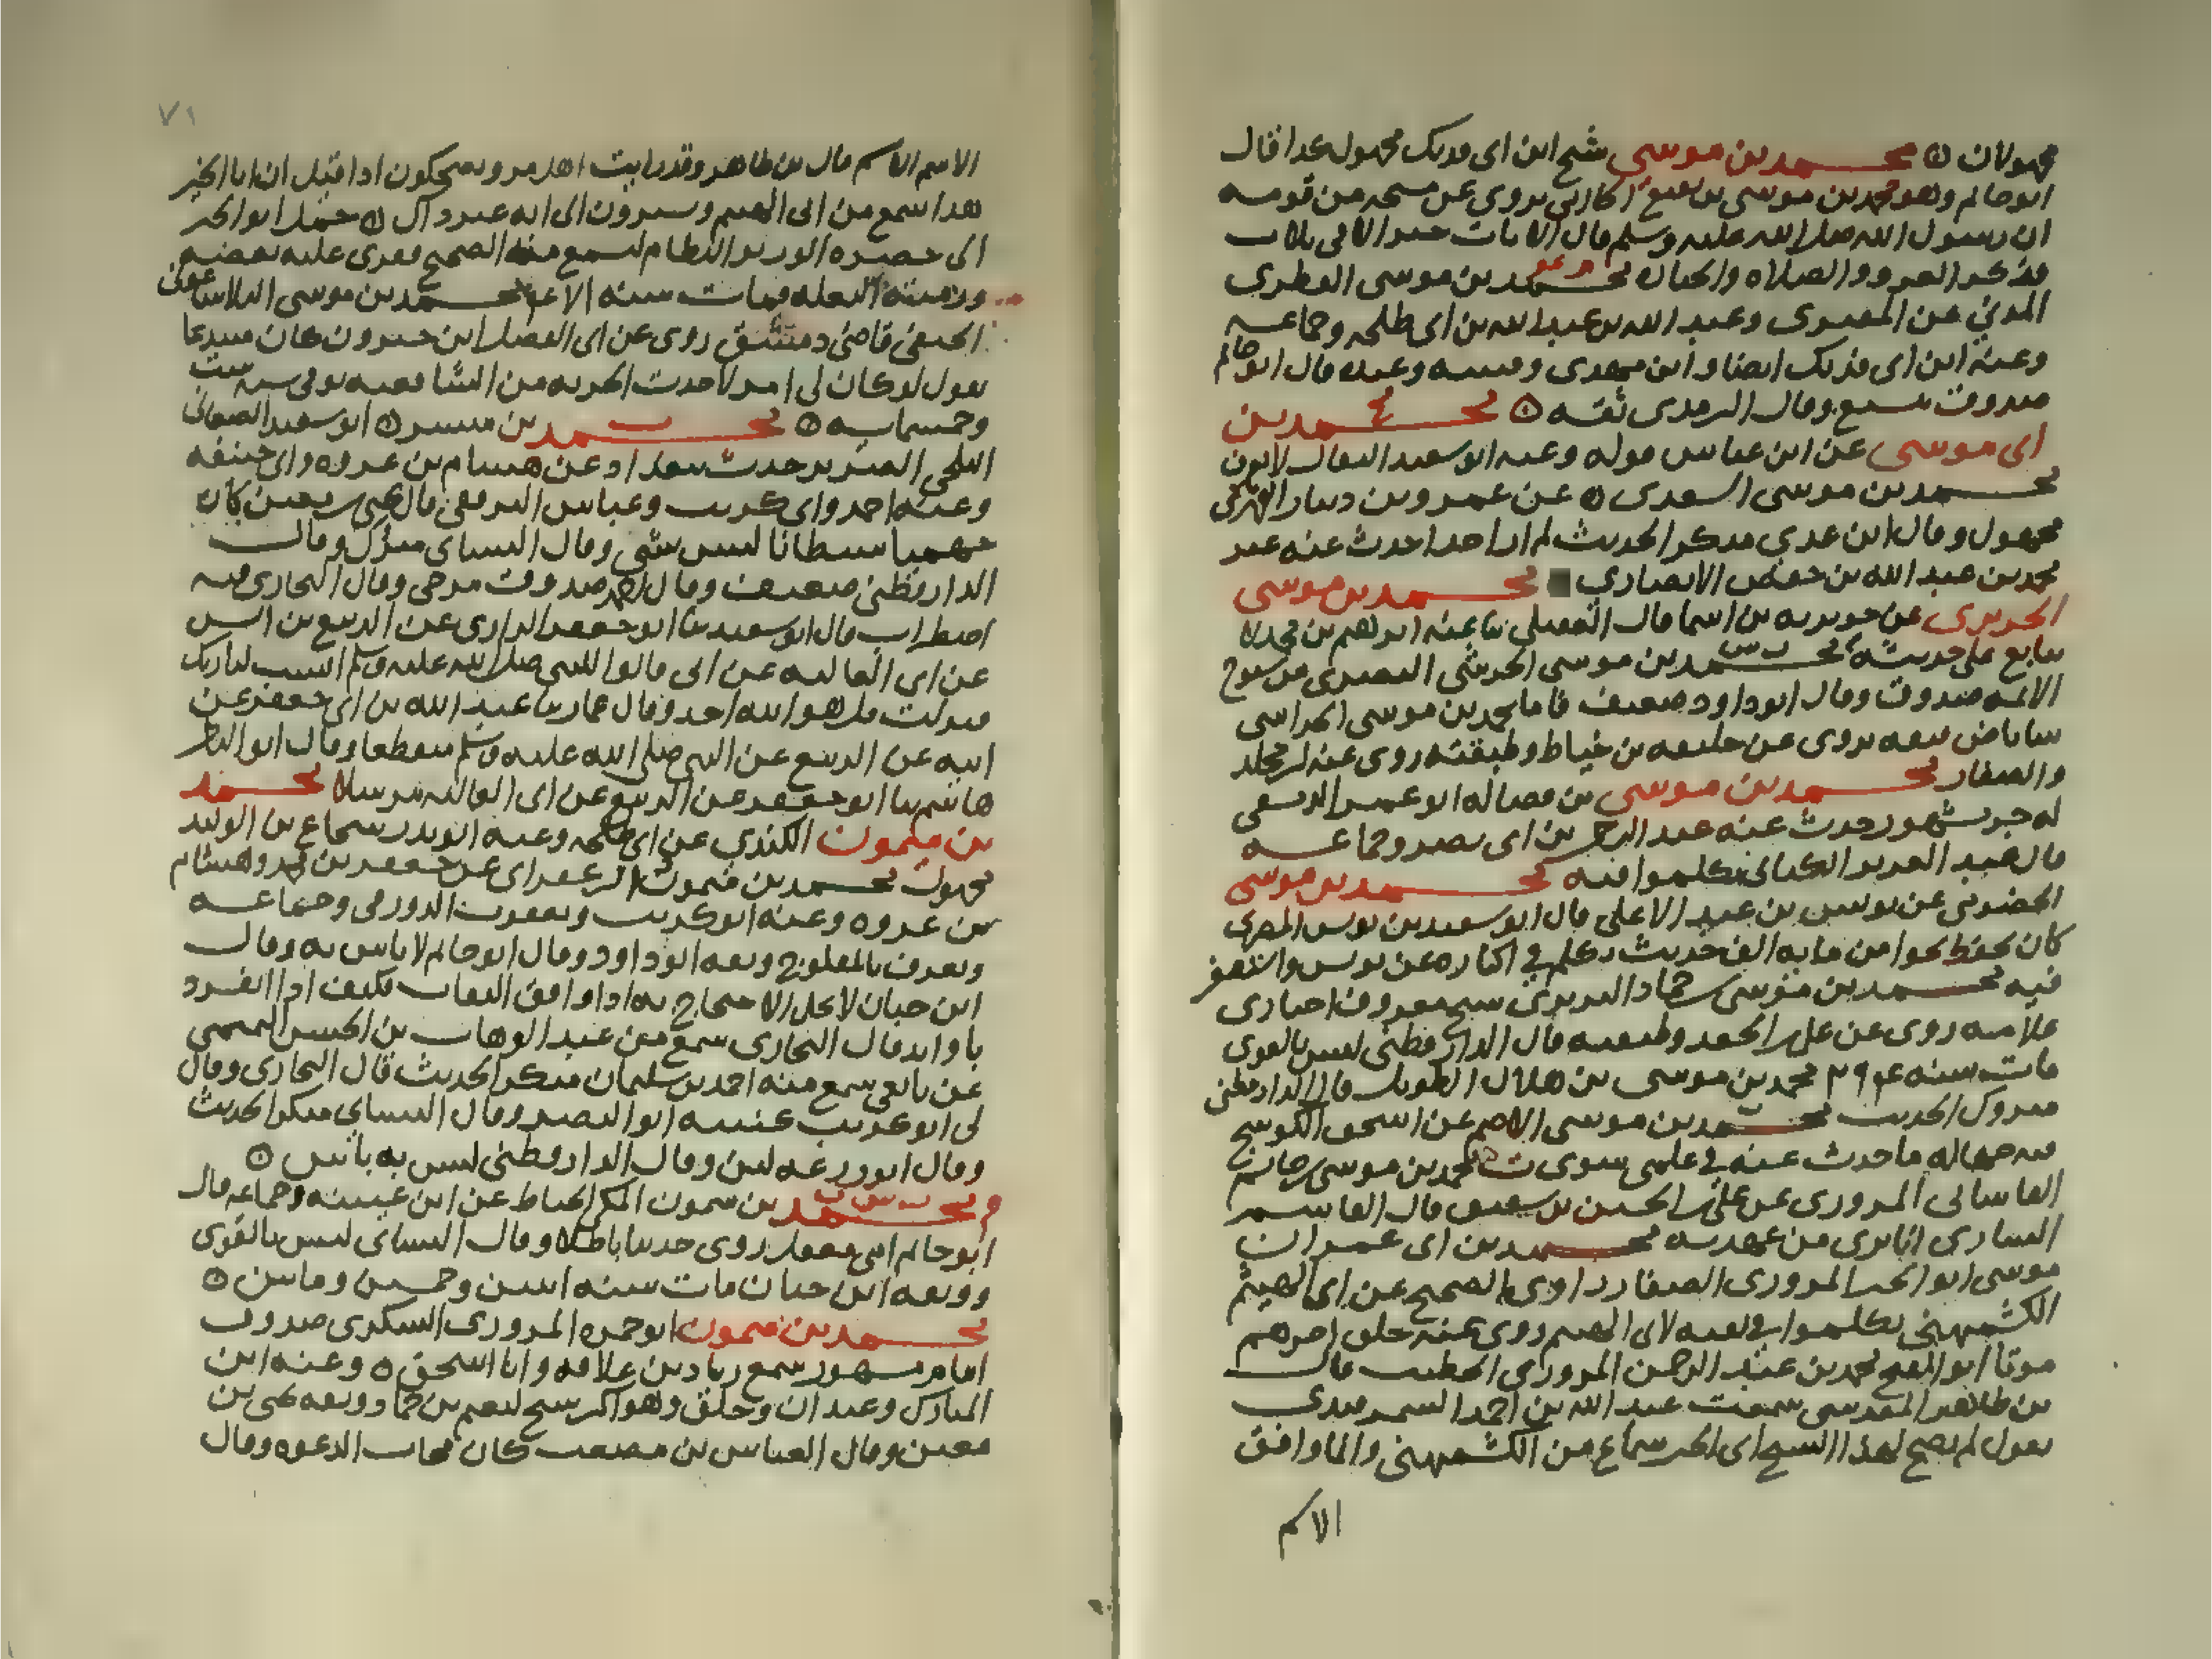 مجهولان ۞ محمد بن موسى شيخ ابن ابي فديك مجهول هكذا قال
ابو حاتم وهو محمد بن موسى بن نفيع الحارثي يروي عن مشيخه من قومه
ان رسول الله صلى الله عليه وسلم قال الاناة خير الا في ثلاث
فذكر الغزو والصلاه والجنازه محمد بن موسى الفطري
المدني عن المقبري وعبد الله بن عبد الله بن ابي طلحه وجماعه
وعنه ابن ابي فديك ايضا وابن مهدي وقتيبه وعده قال ابو حاتم
صدوق يتشيع وقال الترمذي ثقه ۞ محمد بن
ابي موسى عن ابن عباس قوله وعنه ابو سعد البقال لا يعرف
محمد بن موسى السعدي ۞ عن عمرو بن دينار القهرماني
مجهول وقال ابن عدي منكر الحديث لم ار احدا حدث عنه غير
محمد بن عبد الله بن حفص الانصاري محمد بن موسى
الجريري عن جويريه بن اسما قال العقيلي ثنا عنه ابراهيم بن محمد لا
يتابع على حديثه محمد بن موسى الحرشي البصري من شيوخ
الائمه صدوق وقال ابو داود ضعيف فاما محمد بن موسى الحرشي
شاباص ثقه يروي عن خليفه بن خياط وطبقته روى عنه ابن مخلد
والصفار محمد بن موسى بن فضاله ابو عمر الدمشقي
له جزء مشهور حدث عنه عبد الرحمن بن ابي نصر وجماعه
قال عبد العزيز الكتاني تكلموا فيه محمد بن موسى
الحضرمي عن يونس بن عبد الاعلى قال ابو سعيد بن يونس المصري
كان يحفظ نحوا من مايه الف حديث تكلم في اكثاره عن يونس واستصغر
فيه محمد بن موسى بن حماد البربري شيخ معروف اخباري
علامه روى عن علي بن الجعد وطبقته قال الدارقطني ليس بالقوي
مات سنه ٢٩٤ محمد بن موسى بن هلال الطويل قال الدارقطني
متروك الحديث محمد بن موسى الاصم عن اسحق الكوسج
فيه جهاله ما حدث عنه في علمي سوى ت محمد بن موسى بن حاتم
القاساني المروزي عن علي بن الحسن بن شقيق قال القاسم
السياري انا بري من عهدته محمد بن ابي عمران
موسى ابو الخير المروزي الصفار راوي الصحيح عن ابي الهيثم
الكشميهني تكلموا في لقيه لابي الهيثم روى عنه خلق اخرهم
موتا ابو الفتح محمد بن عبد الرحمن المروزي الخطيب قال
بن طاهر المقدسي سمعت عبد الله بن احمد السمرقندي
يقول لم يصح لهذا الشيخ ابي الخير سماع من الكشميهني وانما وافق
الاسم
الاسم الاسم قال بن طاهر وقد رايت اهل مرو يضحكون اذا قيل ان ابا الخير
هذا سمع من ابي الهيثم ويشيرون الى انه غير ذاك ۞ حمل ابو الخير
الى حضره الوزير النظام ليسمع منه الصحيح فقرى عليه بعضه
ورمته البغله فمات سنه محمد بن موسى البلاساغوني
الحنفي قاضي دمشق روى عن ابي الفضل ابن خيرون كان مبتدعا
يقول لو كان لي امر لاخذت الجزيه من الشافعيه توفي سنه ست
وخمسمايه ۞ محمد بن ميسر ۞ ابو سعد الصغاني
البلخي الضرير حدث ببغداد عن هشام بن عروه وابي حنيفه
وعنه احمد وابي كريب وعباس الترقفي قال يحيى بن معين كان
جهميا شيطانا ليس بشي وقال النسائي متروك وقال
الدارقطني ضعيف وقال احمد صدوق مرجي وقال البخاري فيه
اضطراب قال ابو سعد ثنا ابو جعفر الرازي عن الربيع بن انس
عن ابي العاليه عن ابي قالوا للنبي صلى الله عليه وسلم انسب لنا ربك
فنزلت قل هو الله احد وقال عمار ثنا عبد الله بن ابي جعفر عن
ابيه عن الربيع عن النبي صلى الله عليه وسلم منقطعا وقال ابو النضر
هاشم ثنا ابو جعفر عن الربيع عن ابي العاليه مرسلا محمد
بن ميمون الكندي عن ابي طلحه وعنه ابو بدر شجاع بن الوليد
مجهول محمد بن ميمون الزعفراني عن جعفر بن محمد وهشام
بن عروه وعنه ابو كريب ويعقوب الدورقي وجماعه
ويعرف بالمفلوج وثقه ابو داود وقال ابو حاتم لا باس به وقال
ابن حبان لا يحل الاحتجاج به اذا وافق الثقات فكيف اذا انفرد
باوابد قال البخاري سمع من عبد الوهاب بن الحسن التميمي
عن نافع سمع منه احمد بن سليمان منكر الحديث قال البخاري وقال
لي ابو كريب كنيته ابو النضر وقال النسائي منكر الحديث
وقال ابو زرعه لين وقال الدارقطني ليس به باس ۞
محمد بن ميمون المكي الخياط عن ابن عيينه وجماعه قال
ابو حاتم امي مغفل روى حديثا باطلا وقال النسائي ليس بالقوي
ووثقه ابن حبان مات سنه اثنين وخمسين ومائتين ۞
محمد بن ميمون ابو حمزه المروزي السكري صدوق
امام مشهور سمع زياد بن علاقه وابا اسحق ۞ وعنه ابن
المبارك وعبدان وخلق وهو اكبر شيخ لنعيم بن حماد وثقه يحيى بن
معين وقال العباس بن مصعب كان مجاب الدعوه وقال
٧١